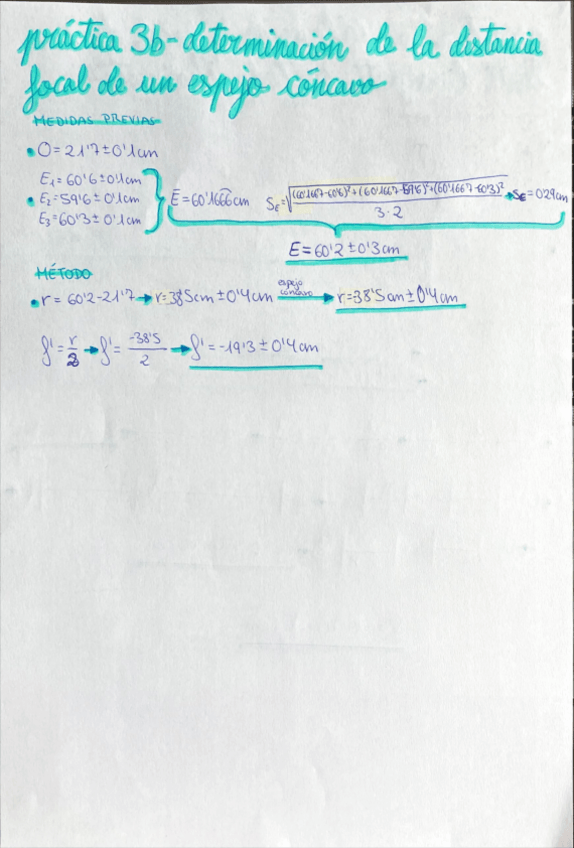 práctica 3b-determinación de la distancia
focal de un espejo cóncavo
MEDIDAS PREVIAS
• O = 21'7 ± 0'1 cm
E₁ = 60'6 ± 0'1 cm
• E₂ = 59'6 ± 0'1 cm
E₃ = 60'3 ± 0'1 cm
Ē = 60'1666 cm
S_E = √((60'1667-60'6)² + (60'1667-59'6)² + (60'1667-60'3)² / 3·2) → S_E = 0'29 cm
E = 60'2 ± 0'3 cm
MÉTODO
• r = 60'2 - 21'7 → r = 38'5 cm ± 0'4 cm espejo cóncavo → r = -38'5 cm ± 0'4 cm
f' = r/2 → f' = -38'5/2 → f' = -19'3 ± 0'4 cm